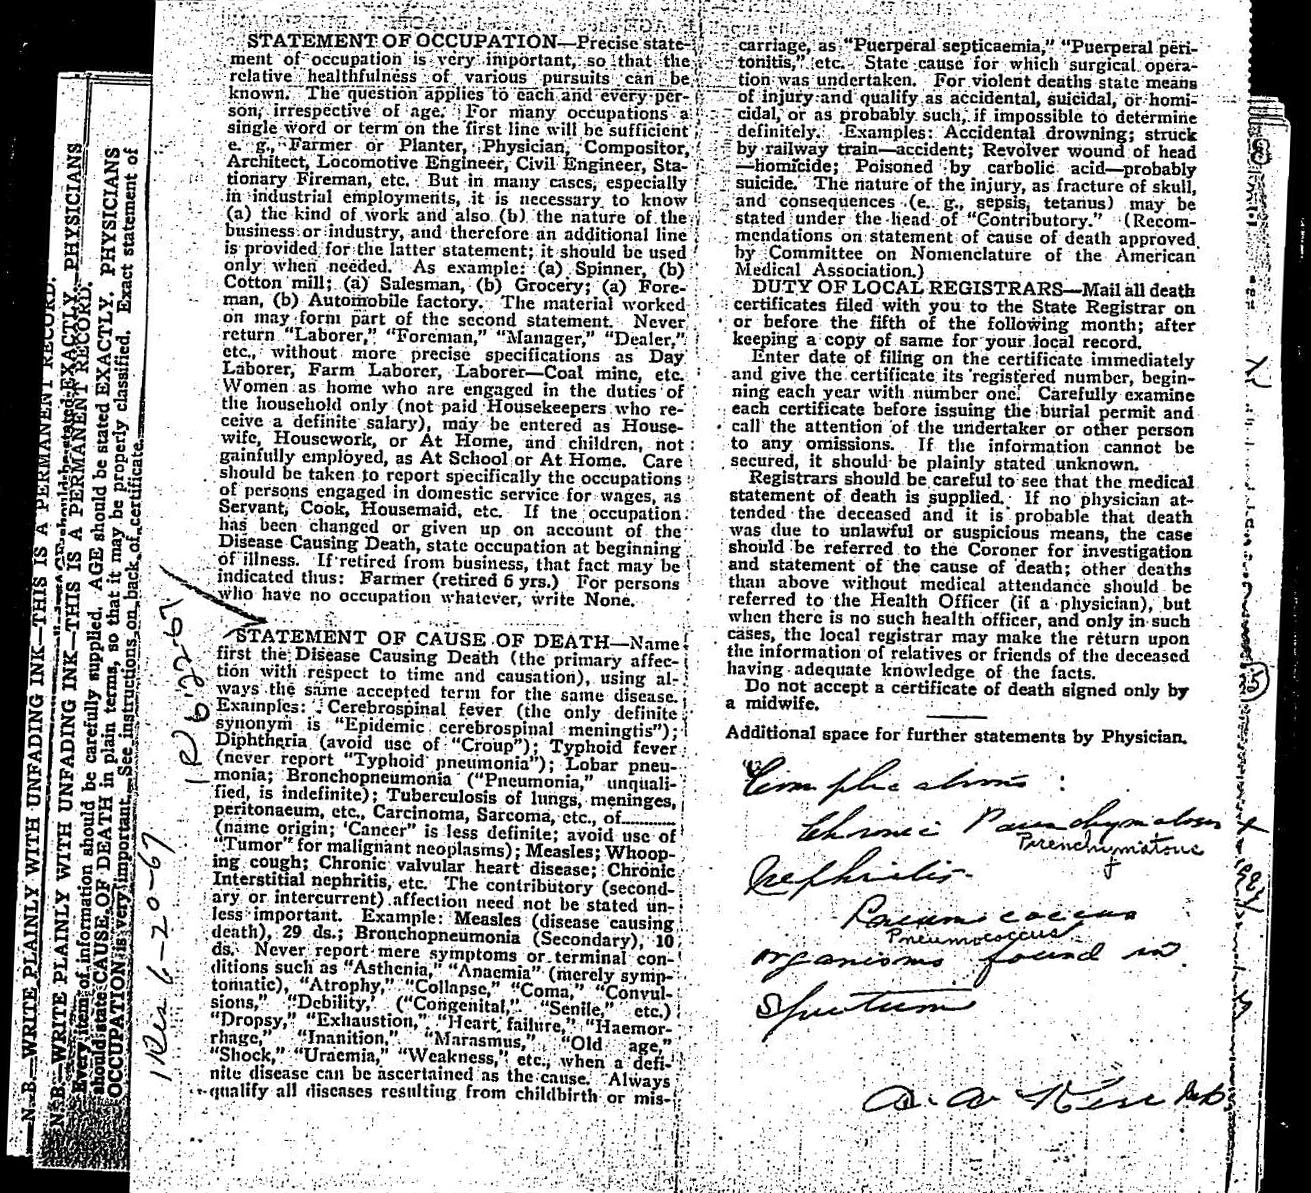 STATEMENT OF OCCUPATION—Precise state-
ment of occupation is very important, so that the
relative healthfulness of various pursuits can be
known. The question applies to each and every per-
son, irrespective of age. For many occupations a
single word or term on the first line will be sufficient
e. g., Farmer or Planter, Physician, Compositor,
Architect, Locomotive Engineer, Civil Engineer, Sta-
tionary Fireman, etc. But in many cases, especially
in industrial employments, it is necessary to know
(a) the kind of work and also (b) the nature of the
business or industry, and therefore an additional line
is provided for the latter statement; it should be used
only when needed. As example: (a) Spinner, (b)
Cotton mill; (a) Salesman, (b) Grocery; (a) Fore-
man, (b) Automobile factory. The material worked
on may form part of the second statement. Never
return "Laborer," "Foreman," "Manager," "Dealer,"
etc., without more precise specifications as Day
Laborer, Farm Laborer, Laborer—Coal mine, etc.
Women as home who are engaged in the duties of
the household only (not paid Housekeepers who re-
ceive a definite salary), may be entered as House-
wife, Housework, or At Home, and children, not
gainfully employed, as At School or At Home. Care
should be taken to report specifically the occupations
of persons engaged in domestic service for wages, as
Servant, Cook, Housemaid, etc. If tne occupation
has been changed or given up on account of the
Disease Causing Death, state occupation at beginning
of illness. If retired from business, that fact may be
indicated thus: Farmer (retired 6 yrs.) For persons
who have no occupation whatever, write None.
STATEMENT OF CAUSE OF DEATH—Name
first the Disease Causing Death (the primary affec-
tion with respect to time and causation), using al-
ways the same accepted term for the same disease.
Examples: Cerebrospinal fever (the only definite
synonym is "Epidemic cerebrospinal meningtis");
Diphtheria (avoid use of "Croup"); Typhoid fever
(never report "Typhoid pneumonia"); Lobar pneu-
monia; Bronchopneumonia ("Pneumonia," unquali-
fied, is indefinite); Tuberculosis of lungs, meninges,
peritonaeum, etc., Carcinoma, Sarcoma, etc., of............
(name origin; 'Cancer" is less definite; avoid use of
"Tumor" for malignant neoplasms); Measles; Whoop-
ing cough; Chronic valvular heart disease; Chronic
Interstitial nephritis, etc. The contributory (second-
ary or intercurrent) affection need not be stated un-
less important. Example: Measles (disease causing
death), 29 ds.; Bronchopneumonia (Secondary), 10
ds. Never report mere symptoms or terminal con-
ditions such as "Asthenia," "Anaemia" (merely symp-
tomatic), "Atrophy," "Collapse," "Coma," "Convul-
sions," "Debility,' ("Congenital," "Senile," etc.)
"Dropsy," "Exhaustion," "Heart failure," "Haemor-
rhage," "Inanition," "Marasmus," "Old age,"
"Shock," "Uraemia," "Weakness," etc., when a defi-
nite disease can be ascertained as the cause. Always
qualify all diseases resulting from childbirth or mis-
carriage, as "Puerperal septicaemia," "Puerperal peri-
tonitis," etc. State cause for which surgical opera-
tion was undertaken. For violent deaths state means
of injury and qualify as accidental, suicidal, or homi-
cidal, or as probably such, if impossible to determine
definitely. Examples: Accidental drowning; struck
by railway train—accident; Revolver wound of head
—homicide; Poisoned by carbolic acid—probably
suicide. The nature of the injury, as fracture of skull,
and consequences (e. g., sepsis, tetanus) may be
stated under the head of "Contributory." (Recom-
mendations on statement of cause of death approved
by Committee on Nomenclature of the American
Medical Association.)
DUTY OF LOCAL REGISTRARS—Mail all death
certificates filed with you to the State Registrar on
or before the fifth of the following month; after
keeping a copy of same for your local record.
Enter date of filing on the certificate immediately
and give the certificate its registered number, begin-
ning each year with number one. Carefully examine
each certificate before issuing the burial permit and
call the attention of the undertaker or other person
to any omissions. If the information cannot be
secured, it should be plainly stated unknown.
Registrars should be careful to see that the medical
statement of death is supplied. If no physician at-
tended the deceased and it is probable that death
was due to unlawful or suspicious means, the case
should be referred to the Coroner for investigation
and statement of the cause of death; other deaths
than above without medical attendance should be
referred to the Health Officer (if a physician), but
when there is no such health officer, and only in such
cases, the local registrar may make the return upon
the information of relatives or friends of the deceased
having adequate knowledge of the facts.
Do not accept a certificate of death signed only by
a midwife.
Additional space for further statements by Physician.
Complications:
Chronic Parenchymatous
Pirenchymatous
Nephritis
Pneumococcus
Pneumococcus
organisms found in
Sputum
N. B.—WRITE PLAINLY WITH UNFADING INK—THIS IS A PERMANENT RECORD.
N. B.—WRITE PLAINLY WITH UNFADING INK—THIS IS A PERMANENT RECORD.
Every item of information should be carefully supplied. AGE should be stated EXACTLY. PHYSICIANS
should state CAUSE OF DEATH in plain terms, so that it may be properly classified. Exact statement of
OCCUPATION is very important. See instructions on back of certificate.
6-20-67
6-22-67